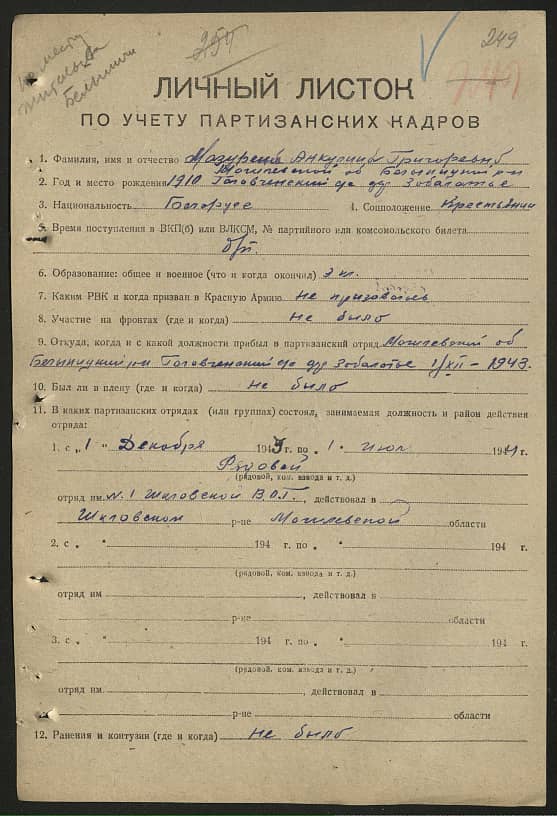 по месту
жительства
Белыничи
254
249
ЛИЧНЫЙ ЛИСТОК
ПО УЧЕТУ ПАРТИЗАНСКИХ КАДРОВ
1. Фамилия, имя и отчество Григоревна
Могилевской об Белыницкий рн
2. Год и место рождения 1910 Головченский с/с д. Зоболотье
3. Национальность Белорусс 4. Соцположение Крестьянин
5. Время поступления в ВКП(б) или ВЛКСМ, № партийного или комсомольского билета
б/п.
6. Образование: общее и военное (что и когда окончил) 3 кл.
7. Каким РВК и когда призван в Красную Армию не призвался
8. Участие на фронтах (где и когда) не было
9. Откуда, когда и с какой должности прибыл в партизанский отряд Могилевский об
Белыницкий рн Головченский с/с д. Зоболотье 1/XII – 1943.
10. Был ли в плену (где и когда) не было
11. В каких партизанских отрядах (или группах) состоял, занимаемая должность и район действия
отряда:
1. с „ 1 " Декабря 1943 г. по „ 1 " Июл 1944 г.
Рядовой
(рядовой, ком. взвода и т. д.)
отряд им. N. 1 Шкловской В.О.Г. , действовал в
Шкловском р-не Могилевской области
2. с „ " 194 г. по „ " 194 г.
(рядовой, ком. взвода и т. д.)
отряд им , действовал в
р-не области
3. с „ " 194 г. по „ " 194 г.
(рядовой, ком. взвода и т. д.)
отряд им , действовал в
р-не области
12. Ранения и контузии (где и когда) не было